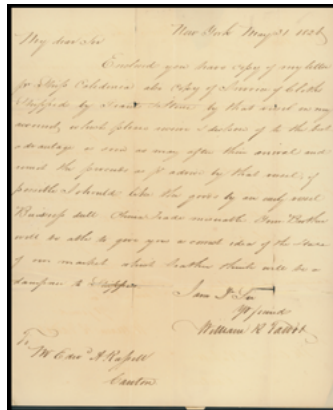 New York May 31 1826
My dear Sir
Enclosed you have copy of my letter
pr Ship Caledonia also copy of Invoice of Cloths
Shipped by by that vessel on my
account, which please dispose of to the best
advantage as soon as may after their arrival and
remit the proceeds as pr advice by that vessel, if
possible I should like the goods by an early vessel
Business dull China trade miserable Your Brother
will be able to give you a correct idea of the State
of our market which I think will be a
damper to Shippers
I am Dr Sir
Yr friend
William R Talbot
To
Mr A Russell
Canton